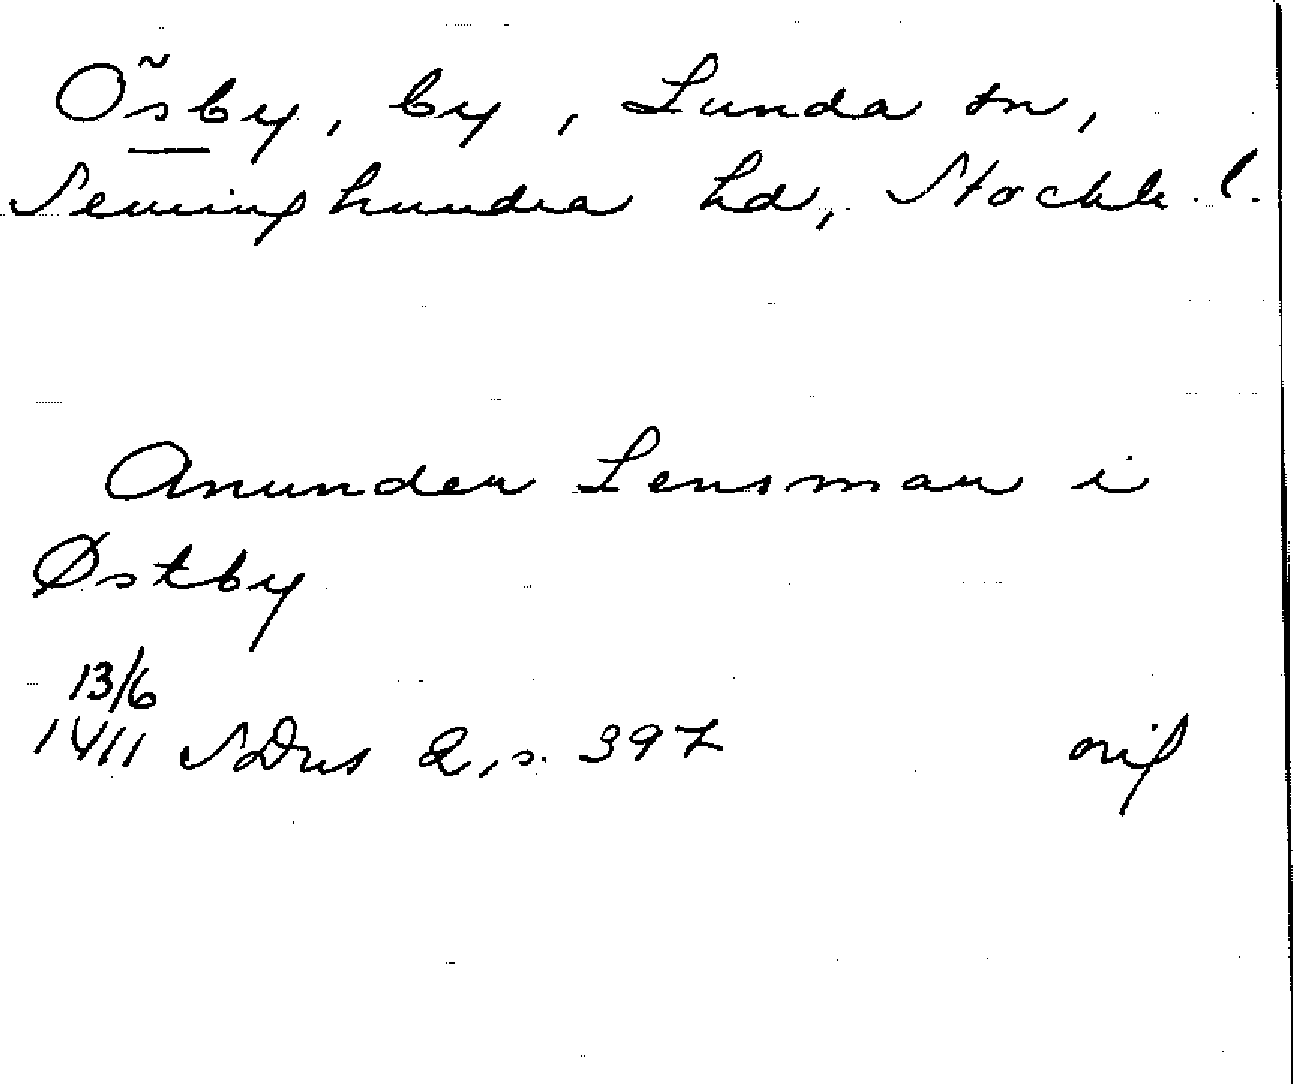 Ösby, by, Lunda sn,
Seminghundra hd, Stockh. l.
Anunder Lensman i
Østby
13/6
1411 SDns 2, s. 397 orig